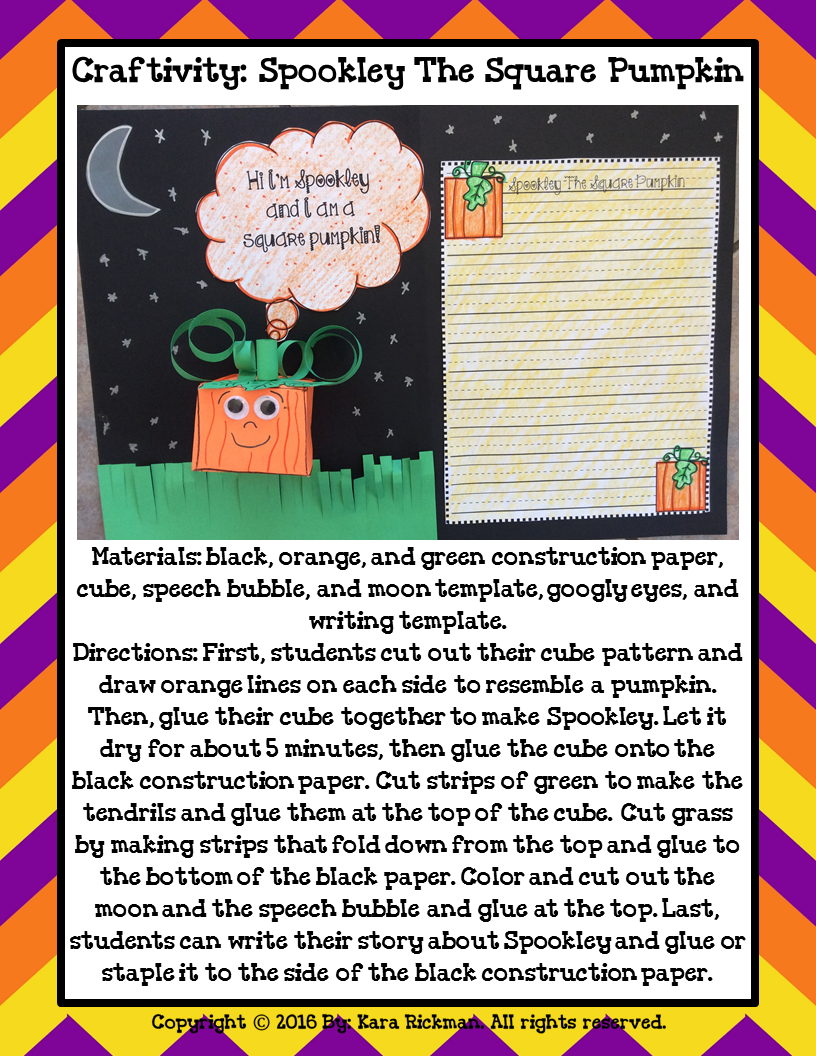 Craftivity: Spookley The Square Pumpkin
Hi I'm Spookley
and I am a
square pumpkin!
Spookley The Square Pumpkin
Materials: black, orange, and green construction paper,
cube, speech bubble, and moon template, googly eyes, and
writing template.
Directions: First, students cut out their cube pattern and
draw orange lines on each side to resemble a pumpkin.
Then, glue their cube together to make Spookley. Let it
dry for about 5 minutes, then glue the cube onto the
black construction paper. Cut strips of green to make the
tendrils and glue them at the top of the cube. Cut grass
by making strips that fold down from the top and glue to
the bottom of the black paper. Color and cut out the
moon and the speech bubble and glue at the top. Last,
students can write their story about Spookley and glue or
staple it to the side of the black construction paper.
Copyright © 2016 By: Kara Rickman. All rights reserved.